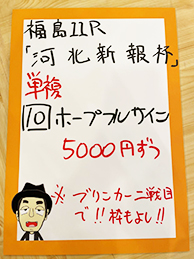 福島11R
「河北新報杯」
単複
10 ホープフルサイン
5000円ずつ
※ブリンカー二戦目
で!!枠もよし!!